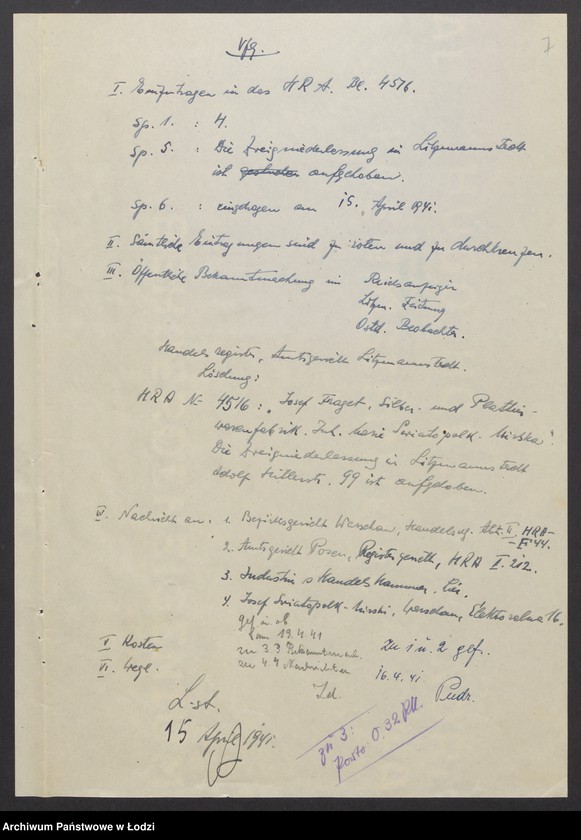 7
Vfg.
I. Einzutragen in das H R A. Bl. 4516.
Sp. 1. : 4.
Sp. 5. : Die Zweigniederlassung in Litzmannstadt
ist gestrichen aufgehoben.
Sp. 6. : eingetragen am 15. April 1941.
II. Sämtliche Eintragungen sind zu röten und zu durchkreuzen.
III. Öffentliche Bekanntmachung im Reichsanzeiger
Litzm. Zeitung
Ostd. Beobachter.
Handelsregister, Amtsgericht Litzmannstadt.
Löschung:
HRA Nr 4516 : „Josef Fraget, Silber- und Plattier-
warenfabrik. Inh. Maria Swiatopolk-Mirska".
Die Zweigniederlassung in Litzmannstadt
Adolf Hitlerstr. 99 ist aufgehoben.
IV. Nachricht an: 1. Bezirksgericht Warschau, Handelsreg. Abt. II, HRA-
2. Amtsgericht Posen, Registergericht, HRA II. 212.
3. Industrie & Handelskammer, hier.
4. Josef Swiatopolk-Mirski, Warschau, Elektoralna 16.
zum 19.4.41
zu 1 u. 2 gef.
V Kosten
zu 3.3 Bekanntmach.
VI. Wegl.
zu 4.4 Nachrichten
16.4.41
L-st.
15 April 1941.
zu 3:
Porto 0.32 RM.
Archiwum Państwowe w Łodzi